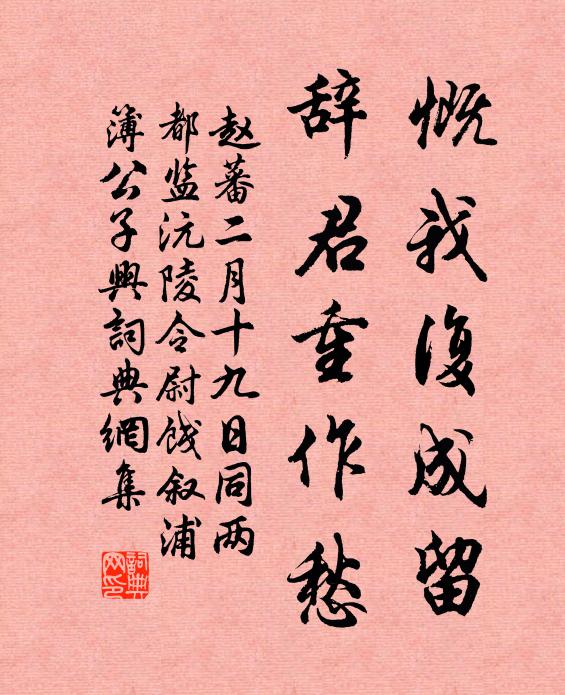 慨我復成留
辞君重作愁
赵蕃二月十九日同两
都监沅陵令尉饯叙浦
簿公子興詞典網集
詞典
网印